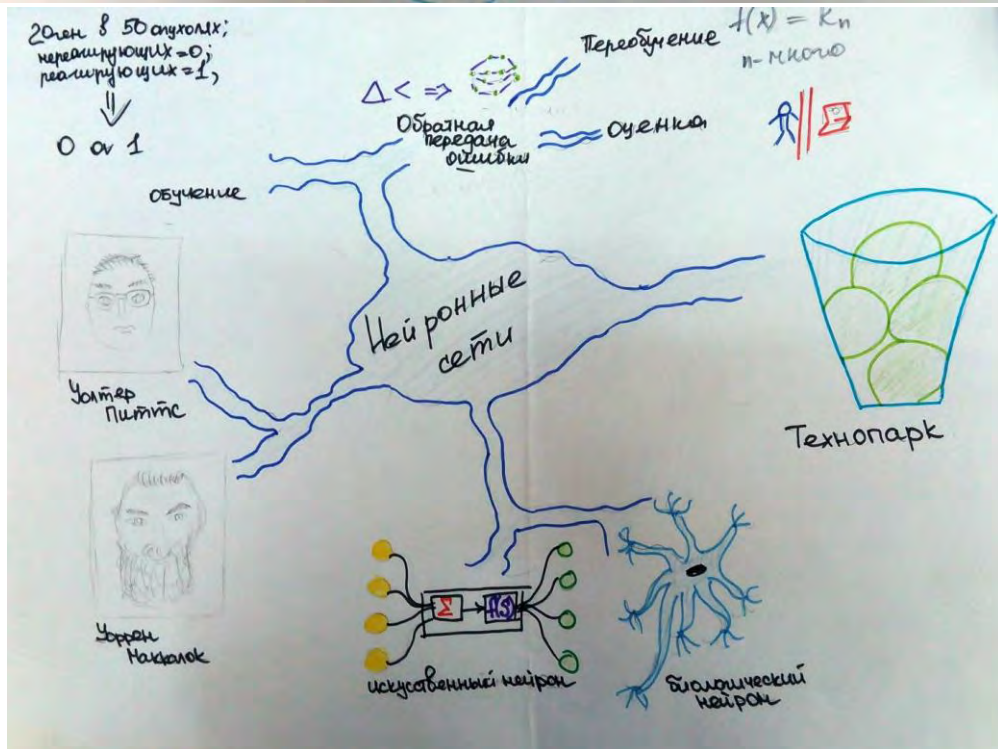 20 ген в 50 опухолях;
нереагирующих = 0;
реагирующих = 1,
0 or 1
обучение
Δ < =>
Обратная
передача
ошибки
Переобучение
f(x) = Kn
n - много
Оценка
Нейронные
сети
Уолтер
Питтс
Уоррен
Маккалок
Технопарк
Σ
f(S)
искуственный нейрон
биологический
нейрон